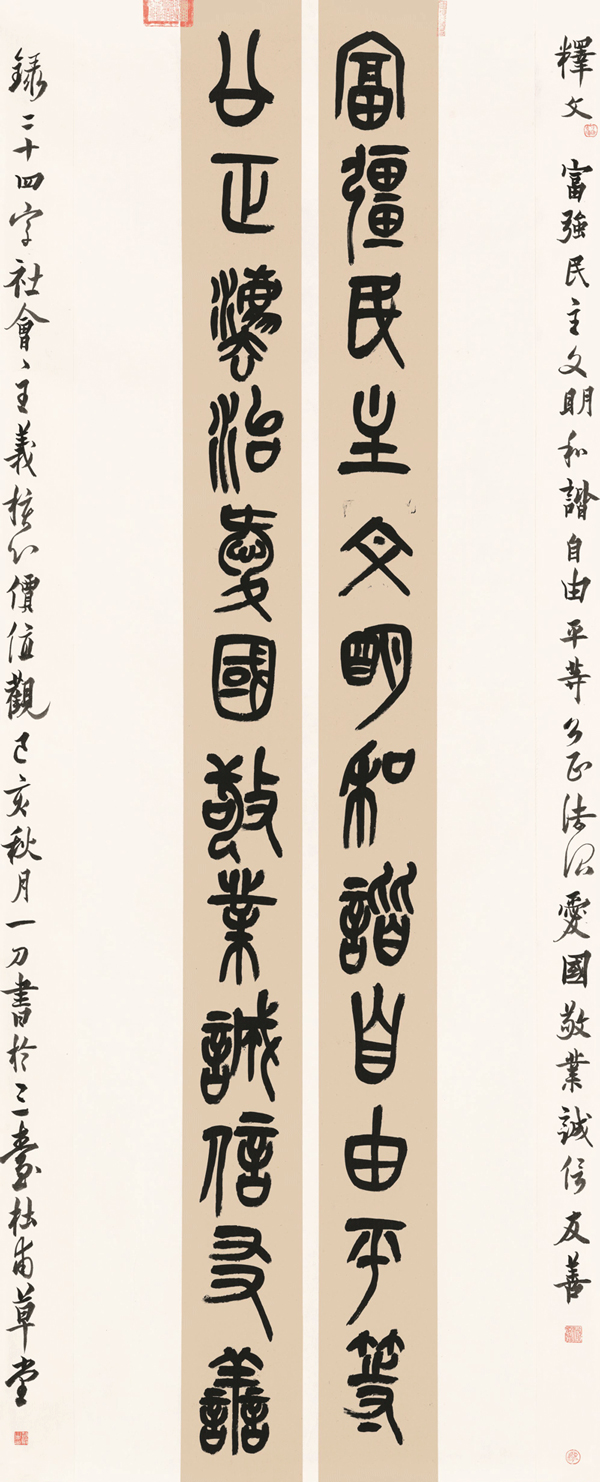 釋文 富強民主文明和諧自由平等公正法治愛國敬業誠信友善
富彊民主文朙和諧自由平等
公正灋治愛國敬業誠信友譱
錄二十四字社會、主義核心價值觀己亥秋月一刀書於三臺杜甫草堂